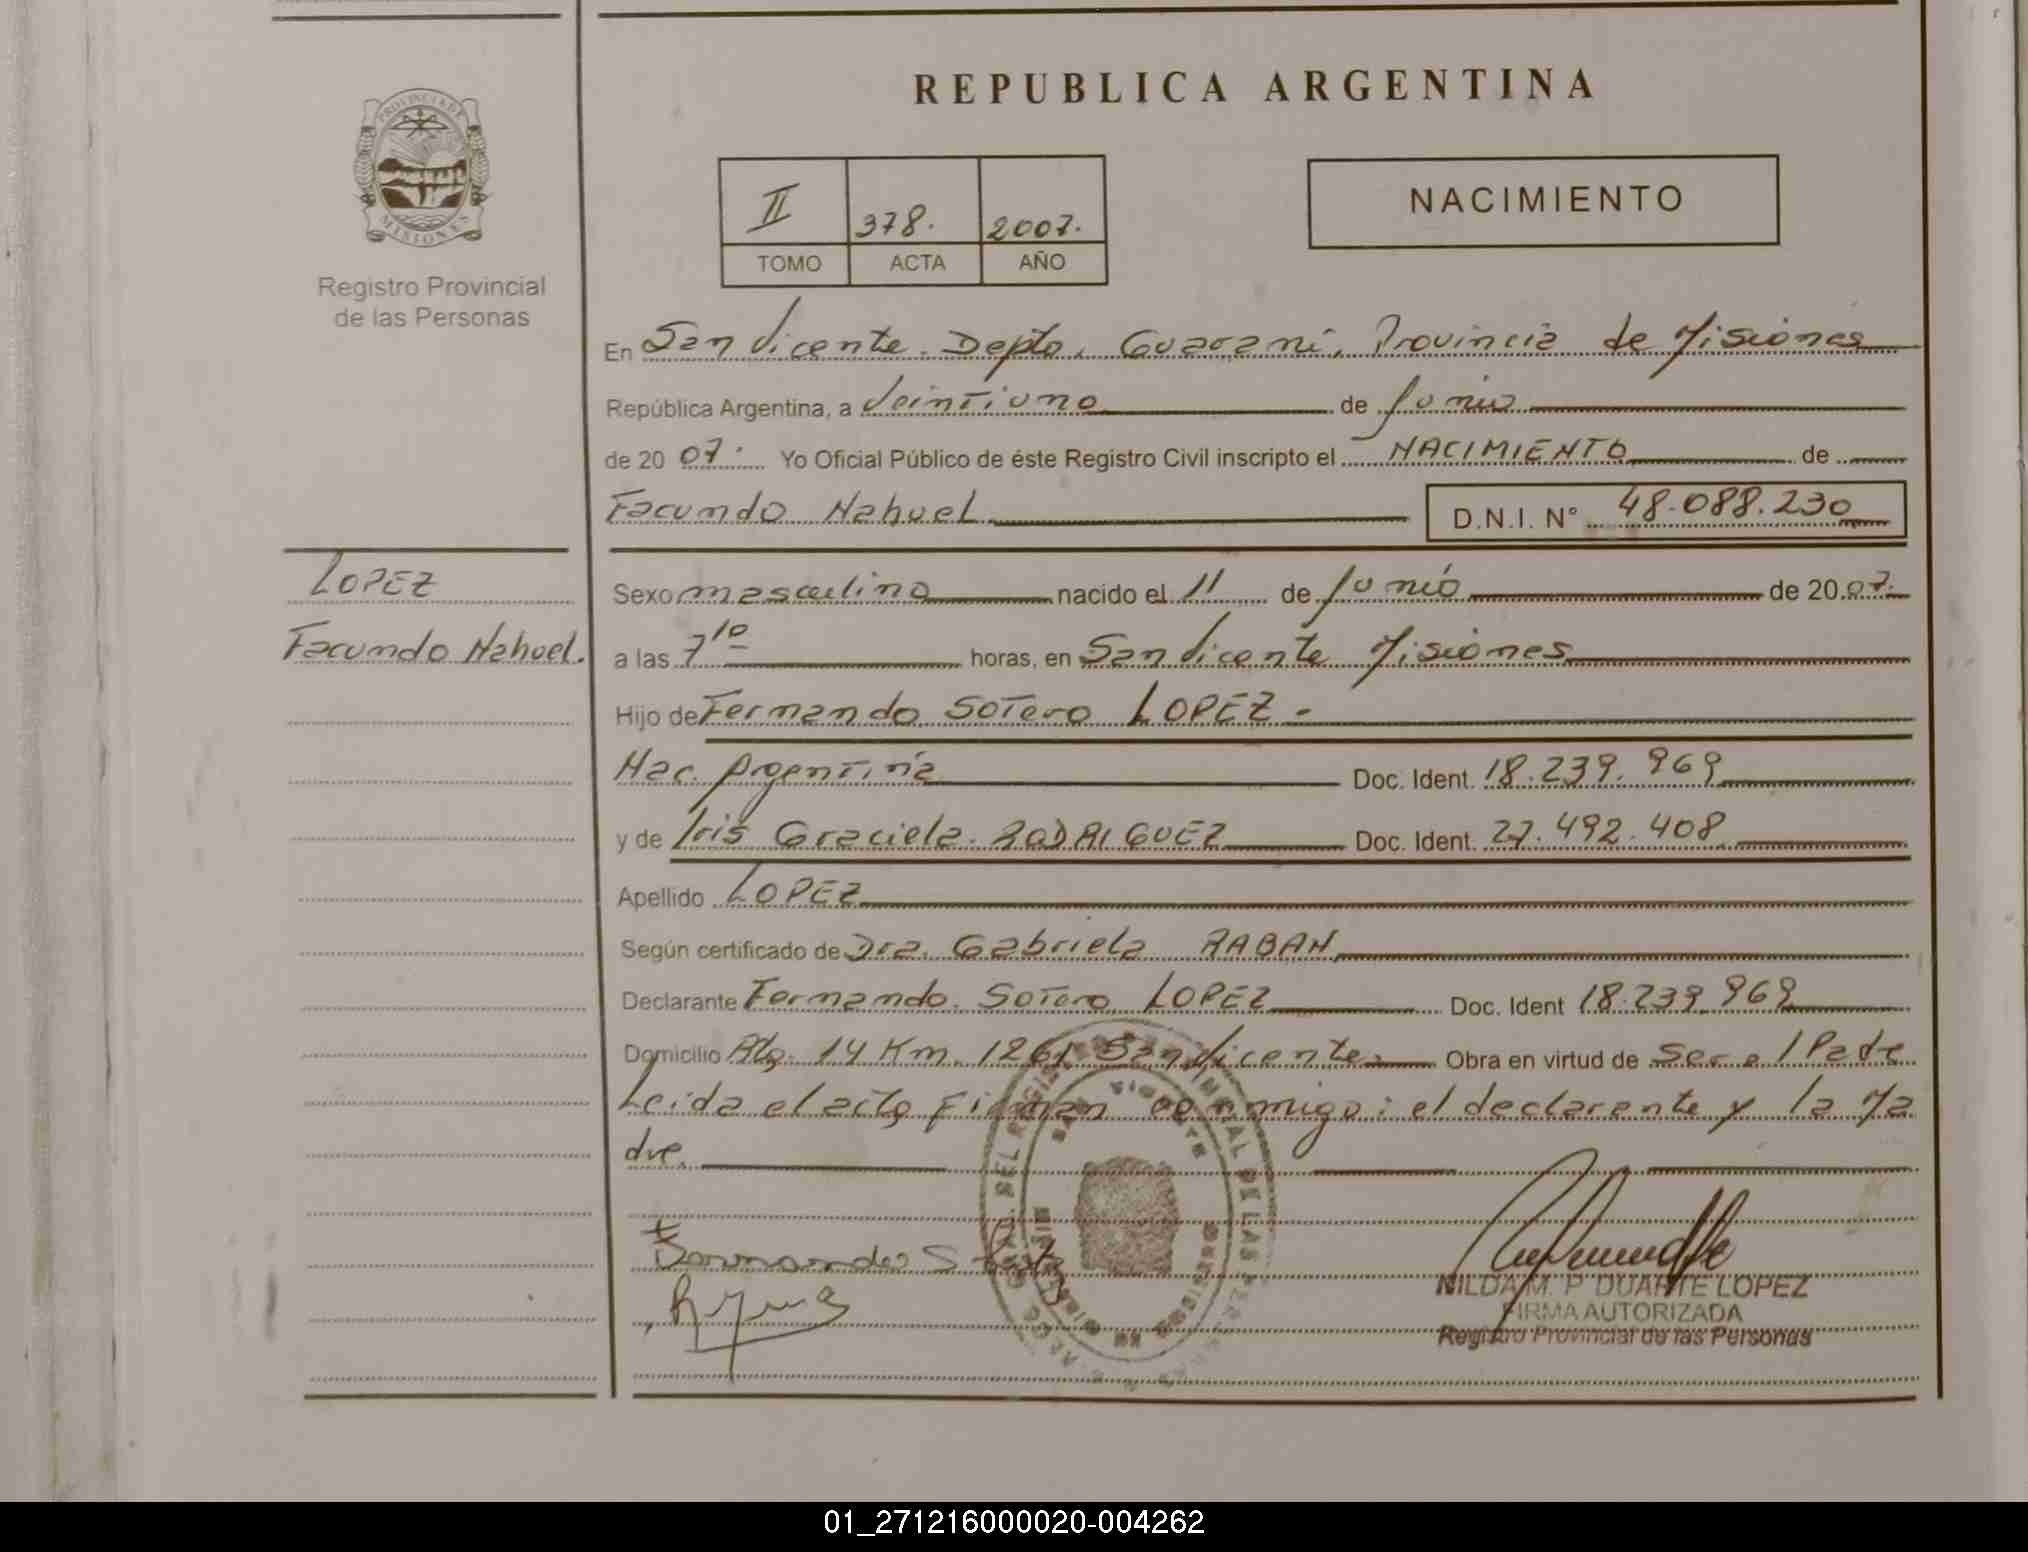 REPUBLICA ARGENTINA
PROVINCIA DE
MISIONES
Registro Provincial
de las Personas
II 378. 2007.
TOMO ACTA AÑO
NACIMIENTO
En San Vicente. Depto. Guaraní, Provincia de Misiones
República Argentina, a Veintiuno de Junio
de 20 07. Yo Oficial Público de éste Registro Civil inscripto el NACIMIENTO de
Facundo Nahuel D.N.I. N° 48.088.230
LOPEZ
Facundo Nahuel.
Sexo masculino nacido el 11 de Junio de 20 07.
a las 7 10 horas, en San Vicente Misiones
Hijo de Fernando Sotero LOPEZ -
Nac. Argentina Doc. Ident. 18.239.969
y de Iris Graciela. RODRIGUEZ Doc. Ident. 27.492.408
Apellido LOPEZ
Según certificado de Dra. Gabriela RABAN
Declarante Fernando. Sotero LOPEZ Doc. Ident 18.239.969
Domicilio Rta. 14 Km. 1261 San Vicente. Obra en virtud de Ser el Padre
Leída el acta Firman conmigo: el declarante y la Ma
dre.
SAN VICENTE
MISIONES
NILDA M. P. DUARTE LOPEZ
FIRMA AUTORIZADA
Registro Provincial de las Personas
01_271216000020-004262